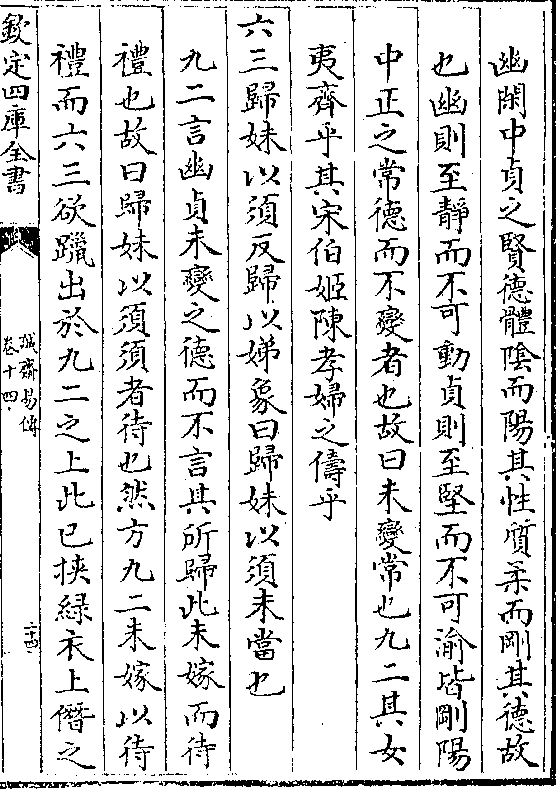 幽閑中貞之賢德體陰而陽其性質柔而剛其德故
也幽則至靜而不可動貞則至堅而不可渝皆剛陽
中正之常德而不變者也故曰未變常也九二其女
夷齊乎其宋伯姬陳孝婦之儔乎
六三歸妹以須反歸以娣象曰歸妹以須未當也
九二言幽貞未變之德而不言其所歸此未嫁而待
禮也故曰歸妹以須須者待也然方九二未嫁以待
禮而六三欲躐出於九二之上此已挾綠衣上僭之
欽定四庫全書
誠齋易傳
卷十四
二十四